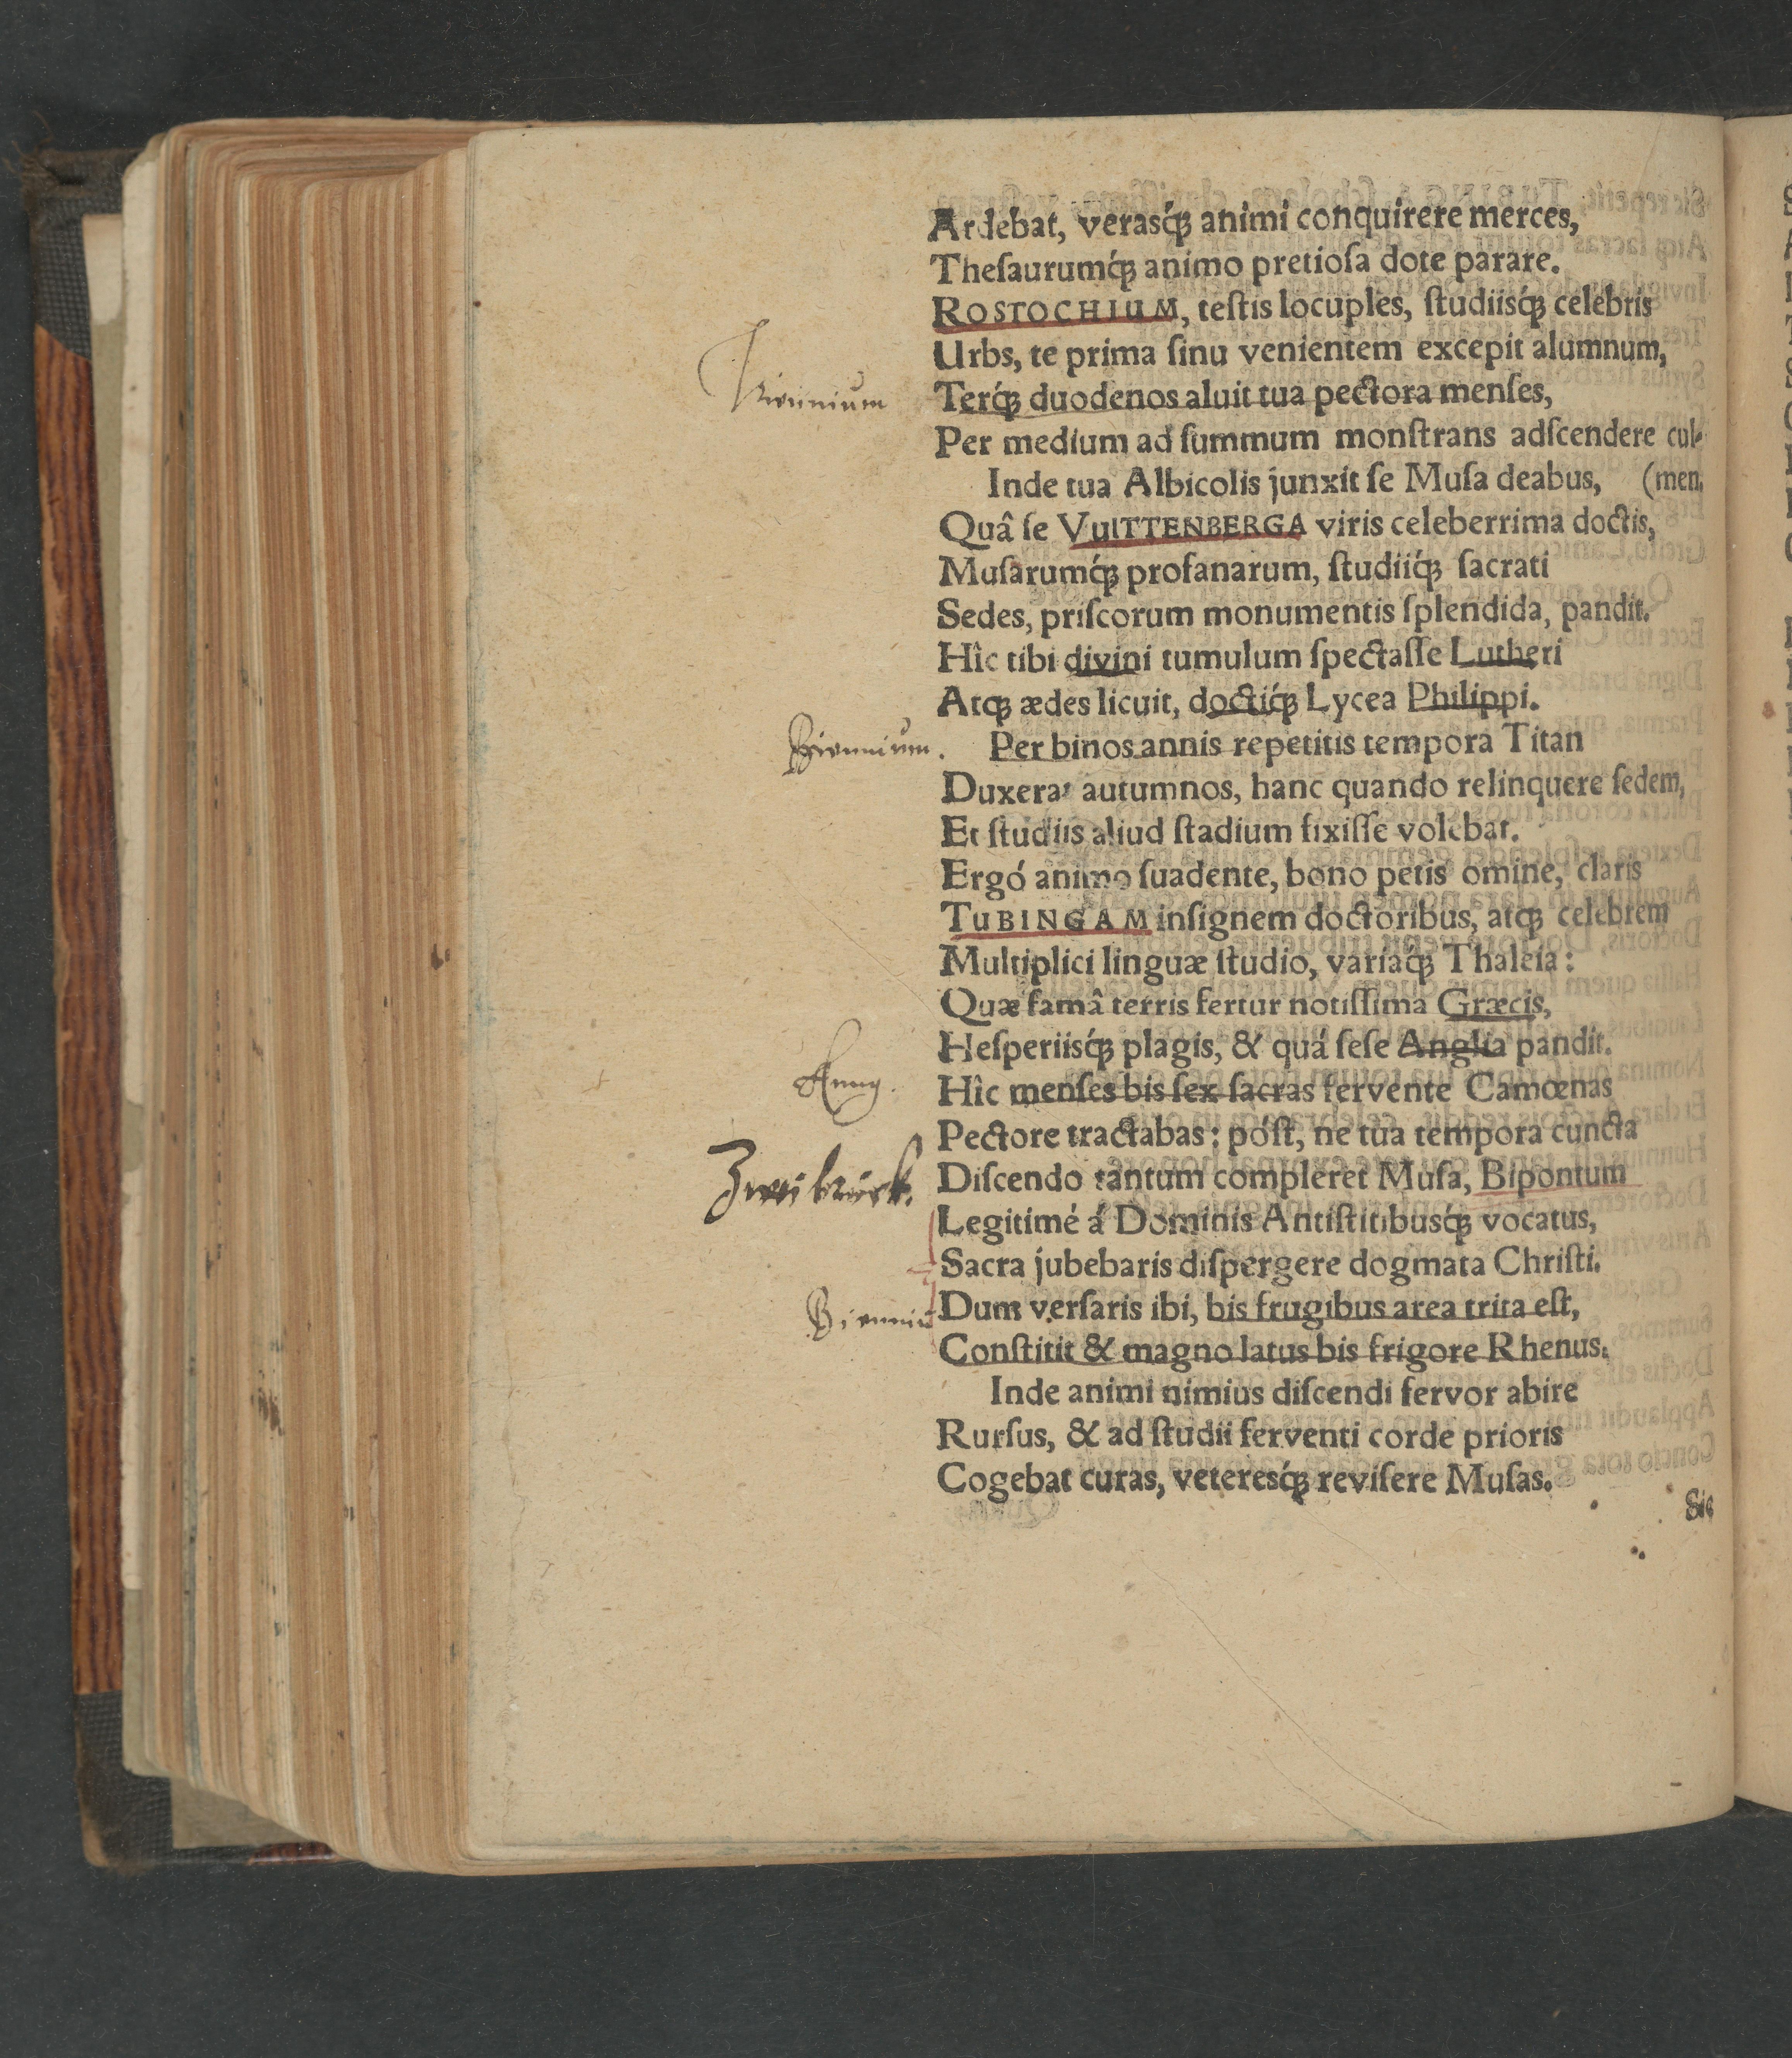 Ardebat, verasq́ꝫ animi conquirere merces,
Theſaurumq́ꝫ animo pretioſa dote parare.
ROSTOCHIUM, teſtis locuples, ſtudiisq́ꝫ celebris
Urbs, te prima ſinu venientem excepit alumnum,
Triennium
Terq́ꝫ duodenos aluit tua pectora menſes,
Per medium ad ſummum monſtrans adſcendere cul-
Inde tua Albicolis junxit ſe Muſa deabus, (men,
Quâ ſe VuITTENBERGA viris celeberrima doctis,
Muſarumq́ꝫ profanarum, ſtudiiq́ꝫ ſacrati
Sedes, priſcorum monumentis ſplendida, pandit.
Hîc tibi divini tumulum ſpectaſſe Lutheri
Atqꝫ ædes licuit, doctiq́ꝫ Lycea Philippi.
Biennium.
Per binos annis repetitis tempora Titan
Duxerat autumnos, hanc quando relinquere ſedem,
Et ſtudiis aliud ſtadium fixiſſe volebat.
Ergó animo ſuadente, bono petis omine, claris
TUBINGAM inſignem doctoribus, atqꝫ celebrem
Multiplici linguæ ſtudio, variáq́ꝫ Thaleia:
Quæ famâ terris fertur notiſſima Græcis,
Heſperiisq́ꝫ plagis, & quá ſeſe Anglia pandit.
Annꝯ.
Hîc menſes bis ſex ſacras fervente Camœnas
Pectore tractabas: póſt, ne tua tempora cuncta
Zweibruck.
Diſcendo tantum compleret Muſa, Bipontum
Legitimé á Dominis Antiſtitibusq́ꝫ vocatus,
Sacra jubebaris diſpergere dogmata Chriſti.
Bienniū
Dum verſaris ibi, bis frugibus area trita eſt,
Conſtitit & magno latus bis frigore Rhenus.
Inde animi nimius diſcendi fervor abire
Rurſus, & ad ſtudii ferventi corde prioris
Cogebat curas, veteresq́ꝫ reviſere Muſas.
Sic